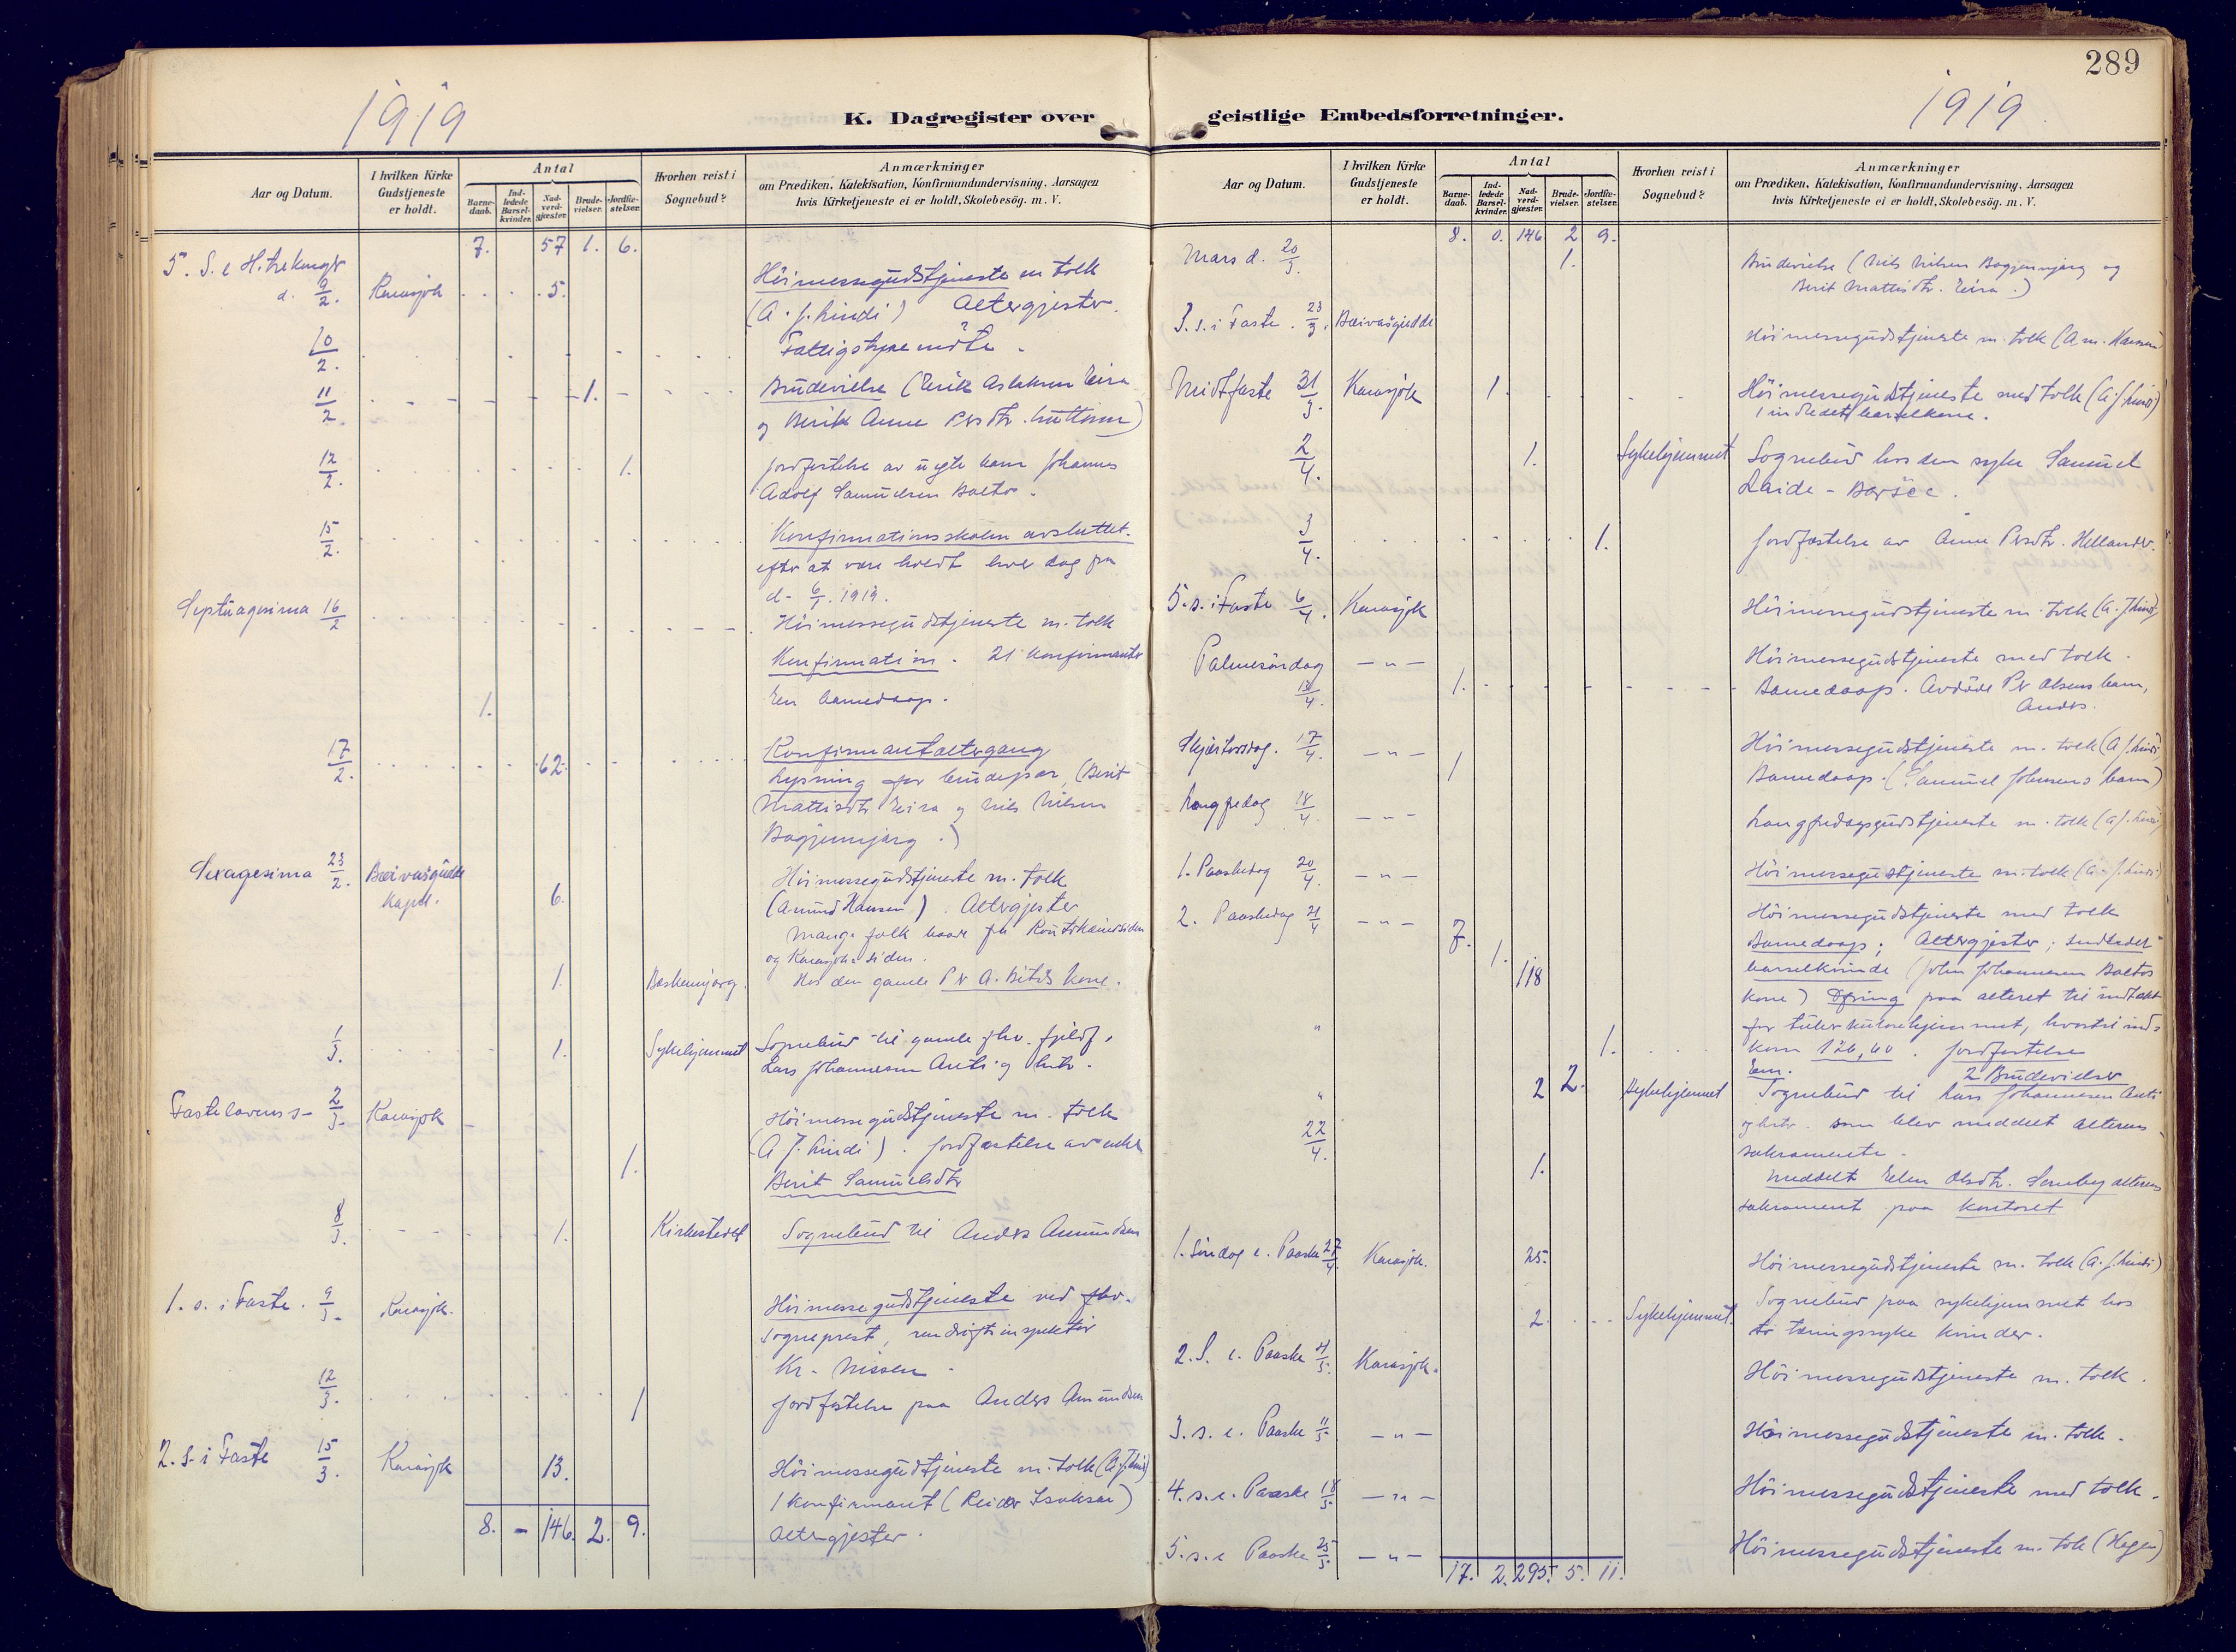 289
1919
1919
K. Dagregister over geistlige Embedsforretninger.
Aar og Datum.
I hvilken Kirke Gudstjeneste er holdt.
Antal
Barnedaab.
Indledede Barselkvinder.
Nadverdgjæster.
Brudevielser.
Jordfæstelser.
Hvorhen reist i Sognebud?
Anmærkninger
om Prædiken, Katekisation, Konfirmandundervisning, Aarsagen
hvis Kirketjeneste ei er holdt, Skolebesög. m. V.
7. 57 1. 6.
5. S. e H. tre konger
d. 9/2. Karasjok 5. Höimessegudstjeneste m tolk
(A. J. Lindi) Altergjester.
10/2. Fattigstyremöte.
11/2 1. Brudevielse (Erik Aslaksen Eira
og Berit Anne Persdtr. Guttorm)
12/2. 1. Jordfestelse av uegte barn Johannes
Adolf Samuelsen Balto.
15/2. Konfirmationsskolen avsluttet.
efter at være holdt hver dag fra
d. 6/1. 1919.
Septuagesima 16/2 Höimessegudstjeneste m. tolk
Konfirmation. 21 konfirmanter
1. En barnedaap.
17/2. 62. Konfirmantaltergang
Lysning for brudepar, (Berit
Mattisdtr Eira og Nils Nilsen
Bogjennjarg.)
Sexagesima 23/2. Bæivasgiedde Kapel. 6. Höimessegudstjeneste m. tolk
(Amund Hansen). Altergjester
Mange folk baade fra Koutokeinosiden
og Karasjok-siden.
1. Baskennjarg. Hos den gamle Pr A. Bitis kone.
1/3. 1. Sykehjemmet Sognebud til gamle fhv. fjeldf.
Lars Johannesen Anti og hstr.
Fastelavens s- 2/3. Karasjok Höimessegudstjeneste m. tolk
(A J. Lindi). Jordfæstelse av enke
1. Berit Samuelsdtr
8/3. 1. Kirkestedet Sognebud til Anders Amundsen
1. s. i Faste. 9/3. Karasjok. Höimessegudstjeneste ved fhv.
Sogneprest, rendriftsinspektör
Kr. Nissen.
12/3. 1 Jordfestelse paa Anders Amundsen
2. S. i Faste 15/3. Karasjok 13. Höimessegudstjeneste m. tolk (A. J. Lindi)
1 konfirmant (Reidar Isaksen)
Altergjester.
8. - 146. 2. 9.
Aar og Datum.
I hvilken Kirke Gudstjeneste er holdt.
Antal
Barnedaab.
Indledede Barselkvinder.
Nadverdgjæster.
Brudevielser.
Jordfæstelser.
Hvorhen reist i Sognebud?
Anmærkninger
om Prædiken, Katekisation, Konfirmandundervisning, Aarsagen
hvis Kirketjeneste ei er holdt, Skolebesög. m. V.
8. 0. 146 2 9.
Mars d. 20/3. 1. Brudevielse (Nils Nilsen Bogjennjarg og
Berit Mattisdtr. Eira.)
3. s. i Faste. 23/3. Bæivasgiedde Höimessegudstjeneste m. tolk (Am. Hansen)
Midtfaste 31/3. Karasjok 1. Höimessegudstjeneste med tolk (A. J. Lindi)
1 indledet barselkone.
2/4. 1. Sykehjemmet Sognebud hos den syke Samuel
3/4. 1. Jordfæstelse av Anne Persdtr. Hellander.
5. s. i Faste 6/4. Karasjok Höimessegudstjeneste m. tolk (A. J. Lindi)
Palmesöndag 13/4. — " — 1. Höimessegudstjeneste med tolk.
Barnedaap. Avdöde Pr Olsens barn,
Anders.
Skjærtorsdag. 17/4. — " — 1 Höimessegudstjeneste m. tolk (A J. Lindi)
Barnedaap. (Samuel Johnsens barn)
Langfredag 18/4. — " — Langfredagsgudstjeneste m. tolk (A J. Lindi)
1. Paaskedag 20/4. — " — Höimessegudstjeneste m. tolk (A. J. Lindi)
2. Paaskedag 21/4 — " — 7. 1. 118 Höimessegudstjeneste med tolk
Barnedaap; Altergjester; Indledet
barselkvinde (John Johannesen Baltos
kone) Ofring paa alteret til indtækt
for tuberkulosehjemmet, hvortil ind-
" 1. kom 126,40. Jordfestelse
Em. 2 Brudevielser
" 2 2. Sykehjemmet Sognebud til Lars Johannesen Anti
og hstr. som blev meddelt alterens
sakramente.
22/4. 1. Meddelt Elen Olsdtr. Somby alterens
sakrament paa kontoret
1. Söndag e. Paaske 27/4. Karasjok. 25. Höimessegudstjeneste m. tolk (A. J. Lindi)
2. Sykehjemmet. Sognebud paa sykehjemmet hos
to tæringssyke kvinder.
2. S. e. Paaske 4/5. Karasjok. Höimessegudstjeneste m. tolk.
3. s. e. Paaske 11/5 — " — Höimessegudstjeneste m. tolk.
4. s. e. Paaske 18/5. — " — Höimessegudstjeneste med tolk.
5. s. e Paaske 25/5. — " — Höimessegudstjeneste m. tolk (Hagen)
17. 2. 295. 5. 11.